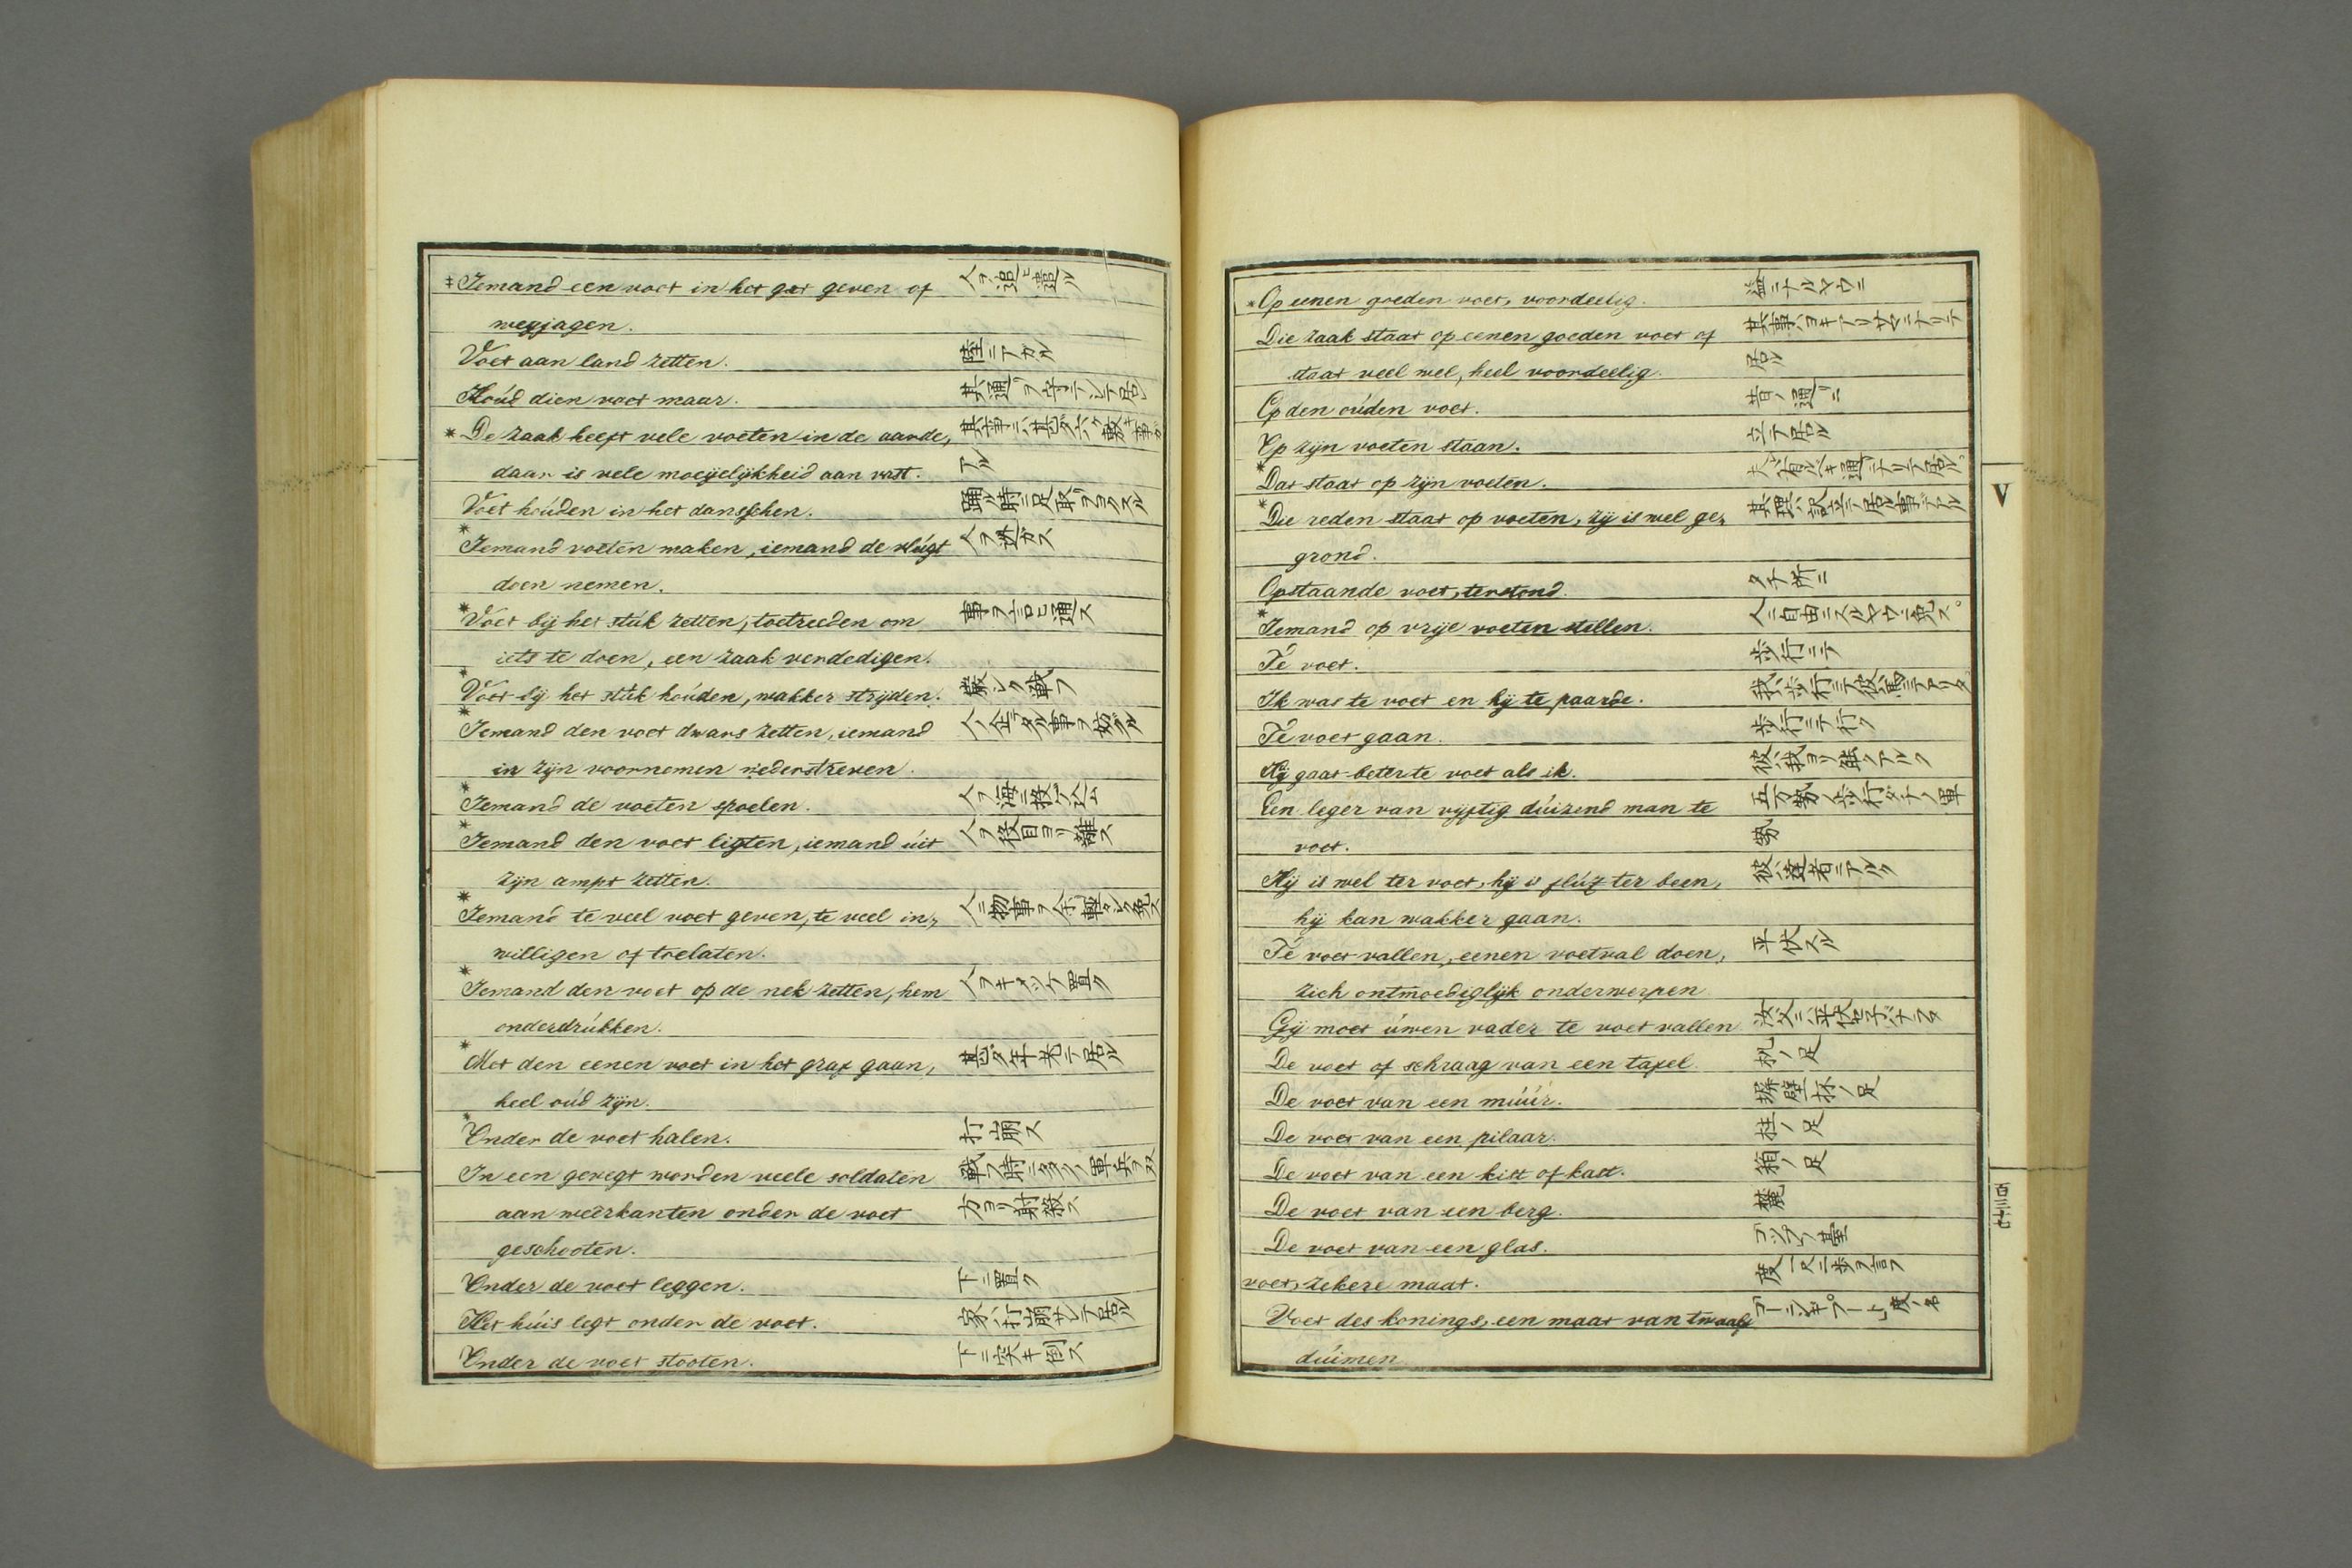 Iemand een voet in het gat geven of 人ヲ追ヒ遣ル
wegjagen.
Voet aan land zetten. 陸ニアガル
Hoúd dien voet maar. 其通リヲ守テ居レ
* De zaak heeft vele voeten in de aarde, 其事ハ甚タ六ケ敷キ事ガ
daar is vele moeijelijkheid aan vast. アル
Voet hoúden in het dansschen. 踊ル時ニ足取ヲヨクスル
* Iemand voeten maken, iemand de vlúgt 人ヲ逃ガス
doen nemen.
* Voet bij het stúk zetten, toetreeden om 事ヲ言ヒ通ス
iets te doen, een zaak verdedigen.
* Voet bij het stúk hoúden, wakker strijden. 厳シク戦フ
* Iemand den voet dwars zetten, iemand 人ノ企タル事ヲ妨ル
in zijn voornemen wederstreven.
* Iemand de voeten spoelen. 人ヲ海ニ投ケ込ム
* Iemand den voet ligten, iemand úit 人ヲ役目ヨリ離ス
zijn ampt zetten.
* Iemand te veel voet geven, te veel in„ 人ニ物事ヲ余リ軽ロシク免ス
willigen of toelaten.
* Iemand den voet op de nek zetten, hem 人ヲ置ク
onderdrúkken.
* Met den eenen voet in het graf gaan, 甚タ年老テ居ル
heel oúd zijn.
* Onder de voet halen. 打崩ス
In een gevegt worden veele soldaten 戦フ時ニ多クノ軍兵ヲ双
aan weêrkanten onder de voet 方ヨリ射殺ス
geschooten.
Onder de voet leggen. 下ニ置ク
Het húis legt onder de voet. 家ハ打崩サレテ居ル
Onder de voet stooten. 下ニ突キ倒ス
* Op eenen goeden voet, voordeelig. 益ニナルヤウニ
Die zaak staat op eenen goeden voet of 其事ハヨキアリサマニナリテ
staat veel wel, heel voordeelig. 居ル
Op den oúden voet. 昔ノ通リニ
Op zijn voeten staan. 立テ居ル
* Dat staat op zijn voeten. 夫ハ有ルベキ通ニナリテ居ル
* Die reden staat op voeten, zij is wel ge„ 其理ハ立テ居ル事デアル
grond.
Opstaande voet, terstond. 所ニ
* Iemand op vrije voeten stellen. 人ニ自由ニスルヤウニ免ス
Te voet. 歩行ニテ
Ik was te voet en hij te paarde. 我ハ歩行ニテ彼ハ馬ニテアリタ
Te voet gaan. 歩行ニテ行ク
Hij gaat beter te voet als ik. 彼ハ我ヨリ強クアルク
Een leger van vijftig dúizend man te 五万勢ノ歩行ダチノ軍
voet. 勢
Hij is wel ter voet, hij is flúx ter been, 彼ハ達者ニアルク
hij kan wakker gaan.
Te voet vallen, eenen voetval doen, 平伏スル
zich ontmoediglijk onderwerpen
Gij moet úwen vader te voet vallen 汝父ニ平伏セ子バナラヌ
De voet of schraag van een tafel. 机ノ足
De voet van een múúr. 塀壁抔ノ足
De voet van een pilaar. 柱ノ足
De voet van een kist of kast. 箱ノ足
De voet van een berg. 麓
De voet van een glas. コップノ臺
voet, zekere maat. 度 尺ニ歩ヲ言フ
Voet des konings, een maat van twaalf 度ノ名
dúimen
V
百三十九